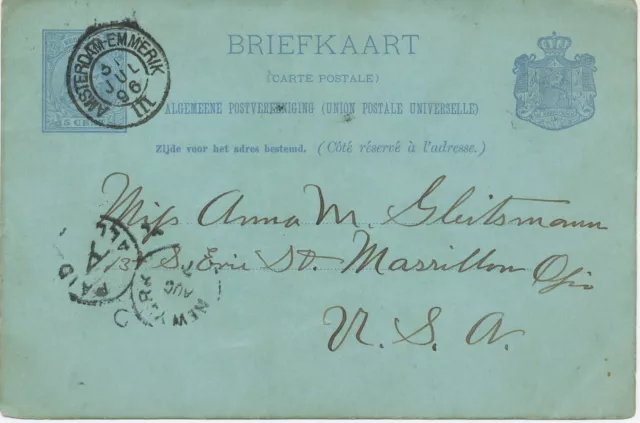 AMSTERDAM-EMMERIK
31
JUL
96
III
5 CENT
BRIEFKAART
(CARTE POSTALE)
ALGEMEENE POSTVEREENIGING (UNION POSTALE UNIVERSELLE)
Zijde voor het adres bestemd. (Côté réservé à l'adresse.)
Miss Anna M. Gleitsmann
13 S. Erie St. Massillon Ohio
U. S. A.
PAID
A
ALL
NEW YORK
AUG